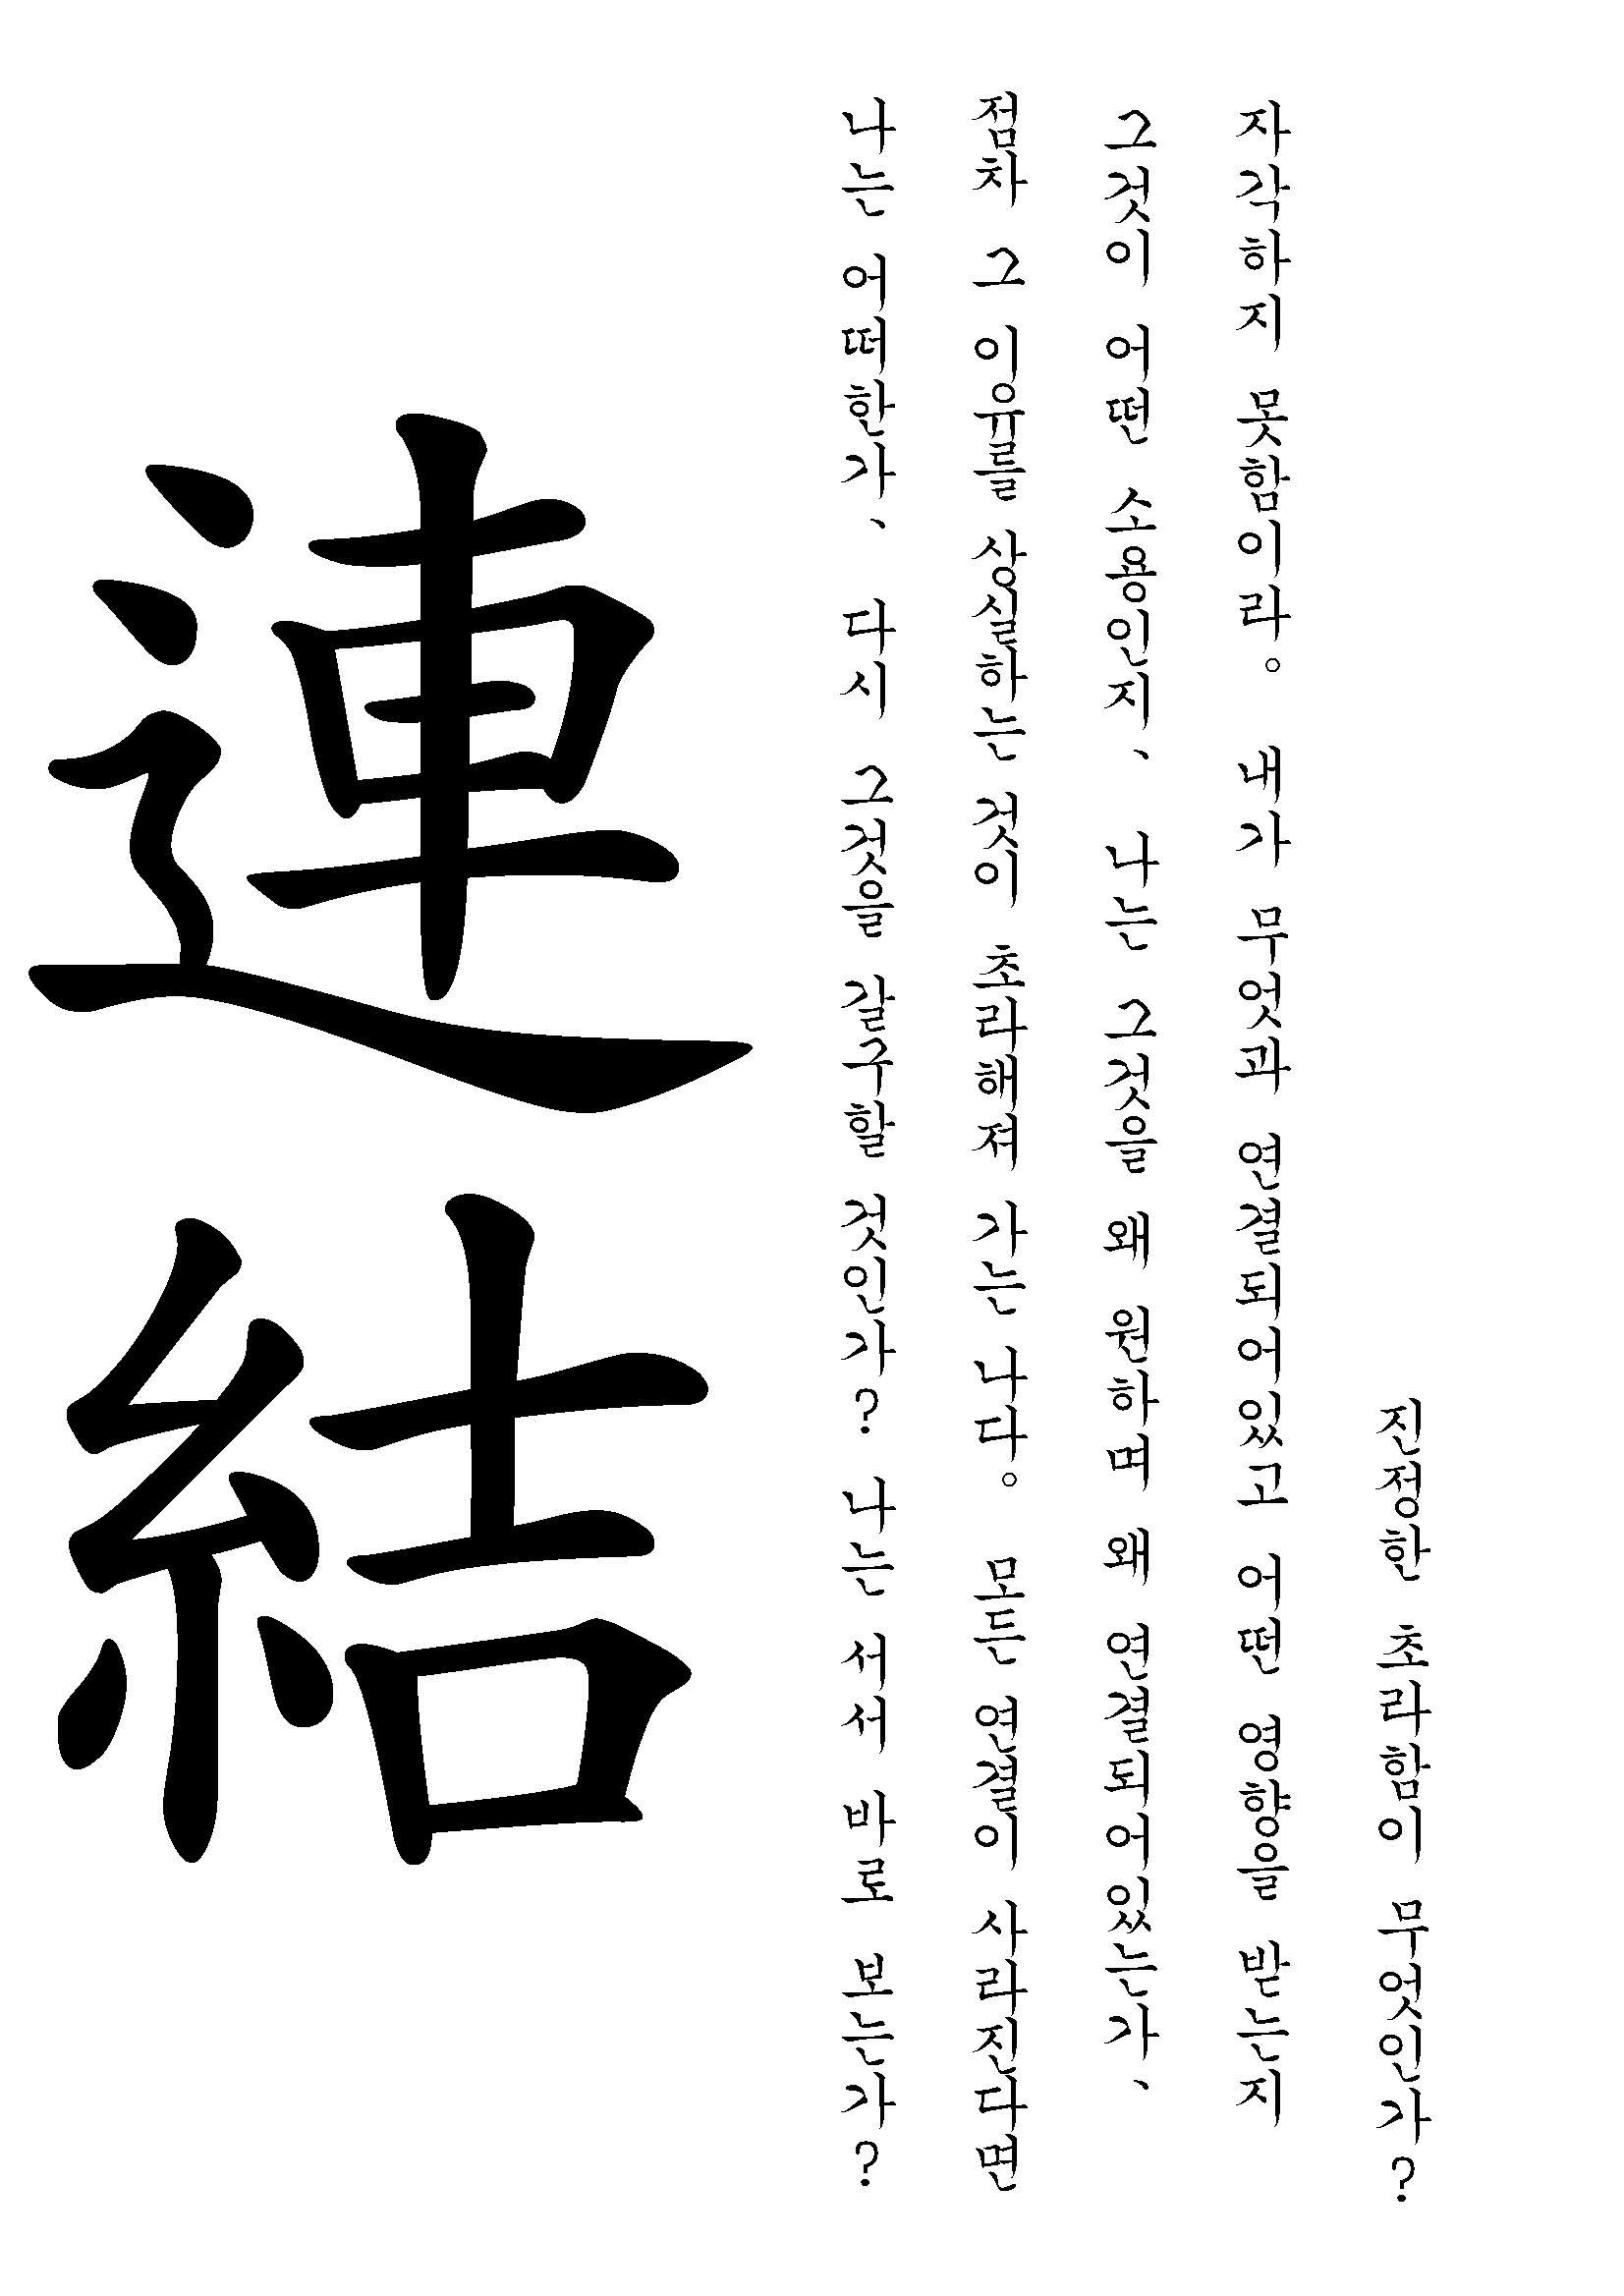 진정한 초라함이 무엇인가?
자각하지 못함이라。 내가 무엇과 연결되어있고 어떤 영향을 받는지
그것이 어떤 소용인지、 나는 그것을 왜 원하며 왜 연결되어있는가、
점차 그 이유를 상실하는 것이 초라해져 가는 나다。 모든 연결이 사라진다면
나는 어떠한가、 다시 그것을 갈구할 것인가? 나는 서서 바로 보는가?
連結